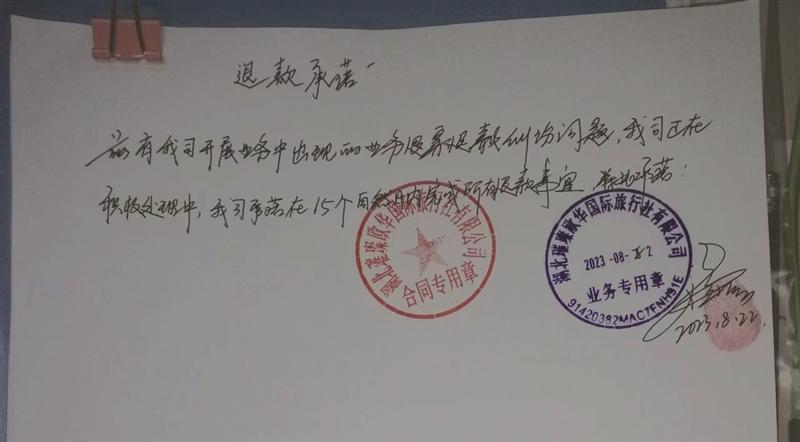 退款承诺
兹有我司开展业务中出现的业务退票退款纠纷问题,我司正在
积极处理中,我司承诺在15个自然日内完成所有退款事宜 特此承诺:
湖北璀璨欧华国际旅行社有限公司
合同专用章
湖北璀璨欧华国际旅行社有限公司
2023-08-22
业务专用章
91420382MAC7FNH91E
2023.8.22.